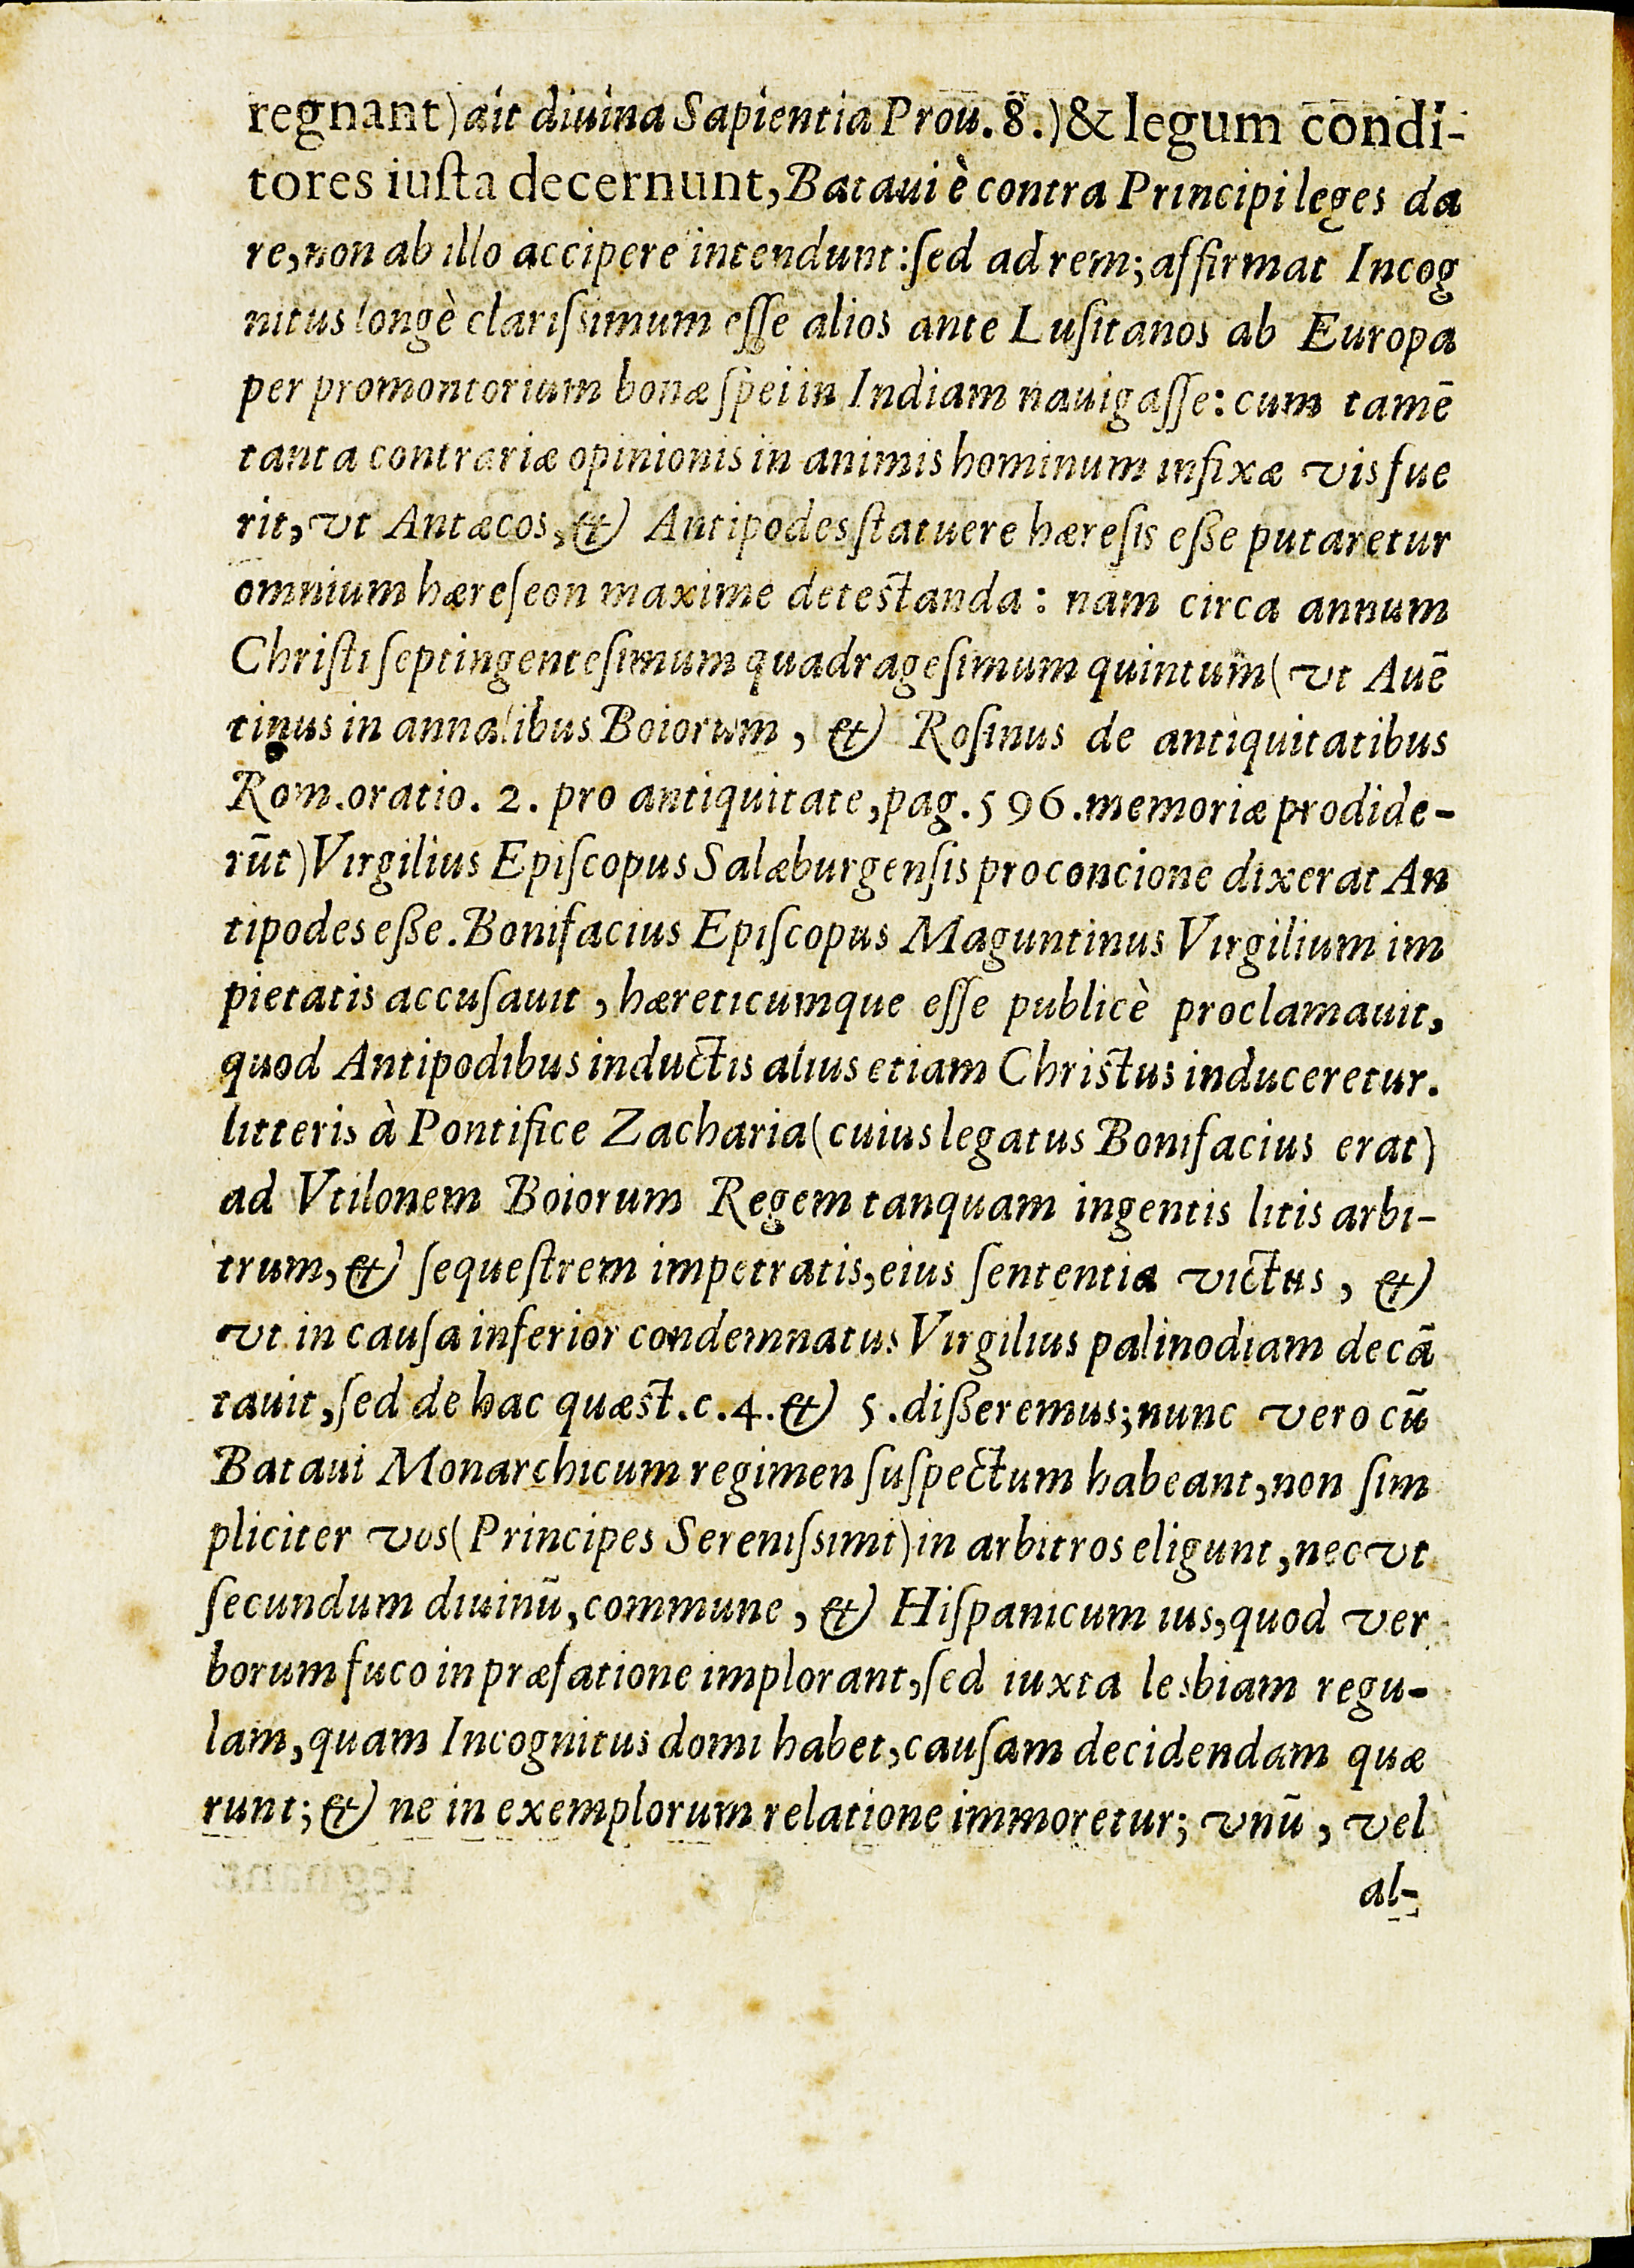 regnant) ait diuina Sapientia Prou. 8.) & legum condi-
tores iuſta decernunt, Bataui è contra Principi leges da
re, non ab illo accipere intendunt: ſed ad rem; affirmat Incog
nitus longè clariſsimum eſſe alios ante Luſitanos ab Europa
per promontorium bonæ ſpei in Indiam nauigaſſe: cum tamē
tanta contrariæ opinionis in animis hominum infixæ vis fue
rit, vt Antæcos, & Antipodes ſtatuere hæreſis eſße putaretur
omnium hæreſeon maxime deteſtanda: nam circa annum
Chriſti ſeptingenteſimum quadrageſimum quintum (vt Auē
tinus in annalibus Boiorum, & Roſinus de antiquitatibus
Rom. oratio. 2. pro antiquitate, pag. 596. memoriæ prodide-
rūt) Virgilius Epiſcopus Salæburgenſis pro concione dixerat An
tipodes eße. Bonifacius Epiſcopus Maguntinus Virgilium im
pietatis accuſauit, hæreticumque eſſe publicè proclamauit,
quod Antipodibus inductis alius etiam Chriſtus induceretur.
litteris à Pontifice Zacharia (cuius legatus Bonifacius erat)
ad Vtilonem Boiorum Regem tanquam ingentis litis arbi-
trum, & ſequeſtrem impetratis, eius ſententia victus, &
vt in cauſa inferior condemnatus Virgilius palinodiam decā
tauit, ſed de hac quæſt. c. 4. & 5. dißeremus; nunc vero cū
Bataui Monarchicum regimen ſuſpectum habeant, non ſim
pliciter vos (Principes Sereniſsimi) in arbitros eligunt, nec vt
ſecundum diuinū, commune, & Hiſpanicum ius, quod ver
borum fuco in præfatione implorant, ſed iuxta lesbiam regu-
lam, quam Incognitus domi habet, cauſam decidendam quæ
runt; & ne in exemplorum relatione immoretur; vnū, vel
al-